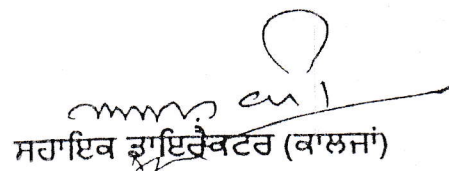 ਸਹਾਇਕ ਡਾਇਰੈਕਟਰ (ਕਾਲਜਾਂ)